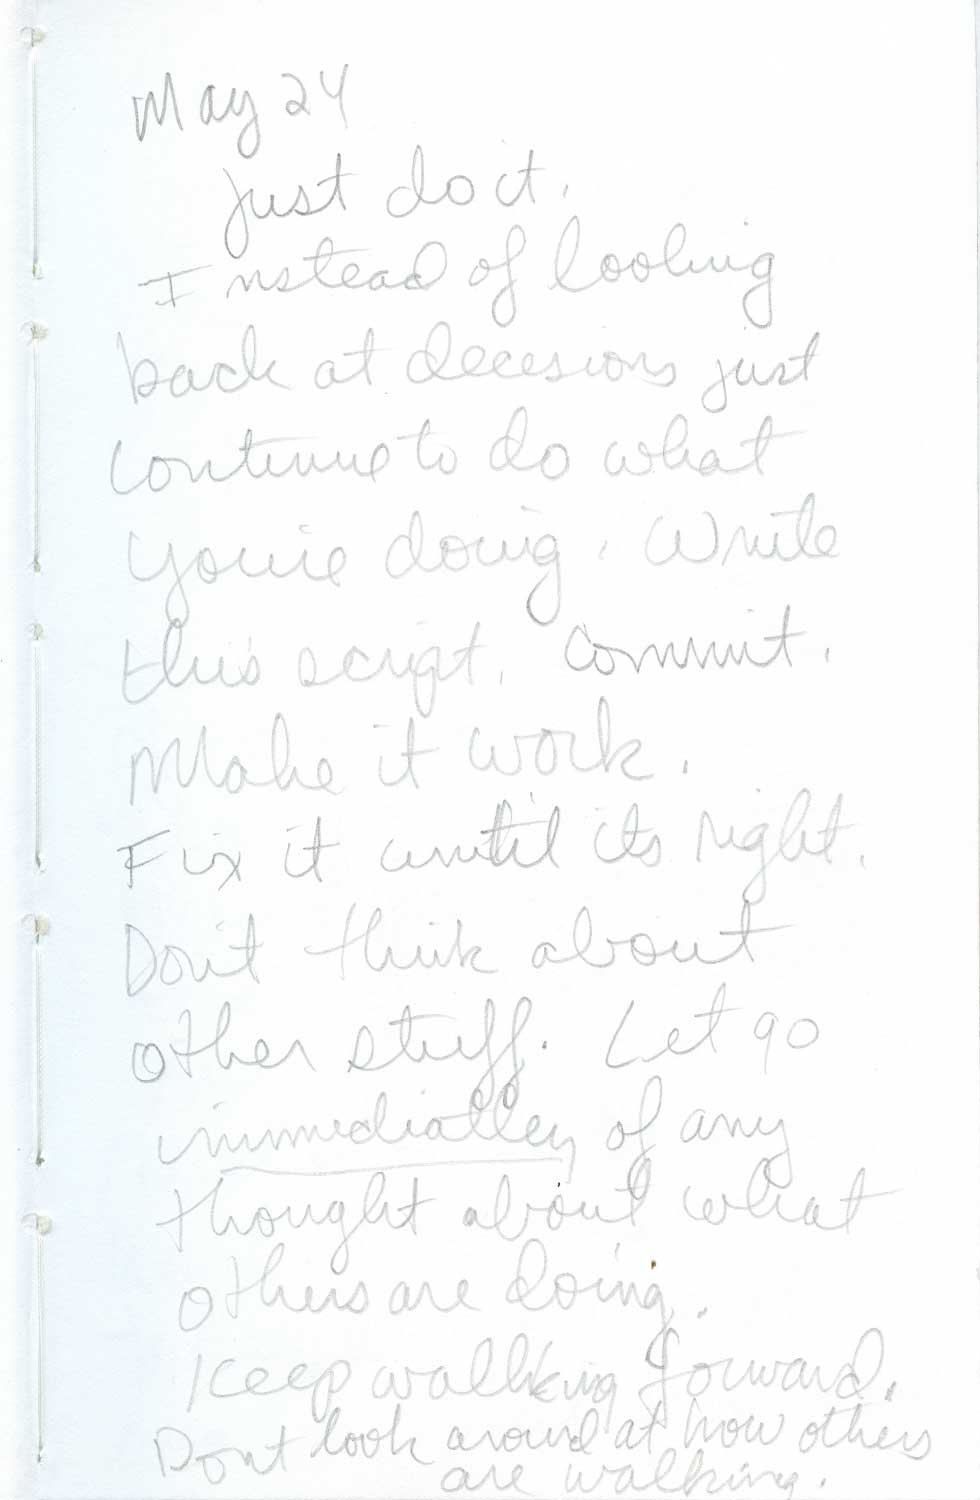 May 24
just do it.
Instead of looking
back at decesions just
continue to do what
you're doing. Write
this script. Commit.
Make it work.
Fix it until its right.
Don't think about
other stuff. Let go
immediatley of any
thought about what
others are doing.
Keep walking forward.
Dont look around at how others
are walking.